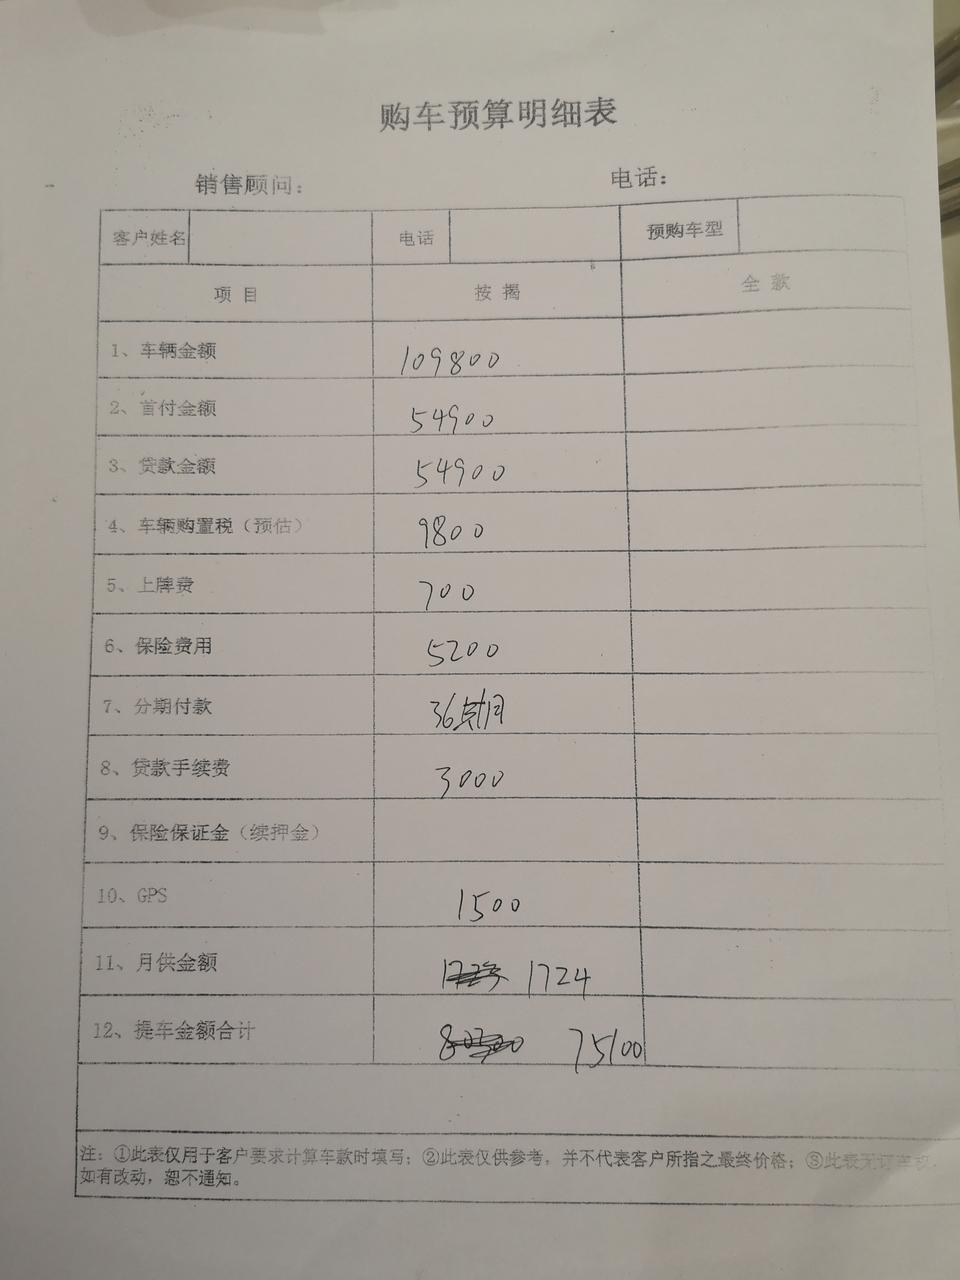 购车预算明细表
销售顾问： 电话：
客户姓名 电话 预购车型
项 目 按 揭 全 款
1、车辆金额 109800
2、首付金额 54900
3、贷款金额 54900
4、车辆购置税（预估） 9800
5、上牌费 700
6、保险费用 5200
7、分期付款 36 月
8、贷款手续费 3000
9、保险保证金（续押金）
10、GPS 1500
11、月供金额 1724
12、提车金额合计 75100
注：①此表仅用于客户要求计算车款时填写；②此表仅供参考，并不代表客户所指之最终价格；③此表无订车
如有改动，恕不通知。